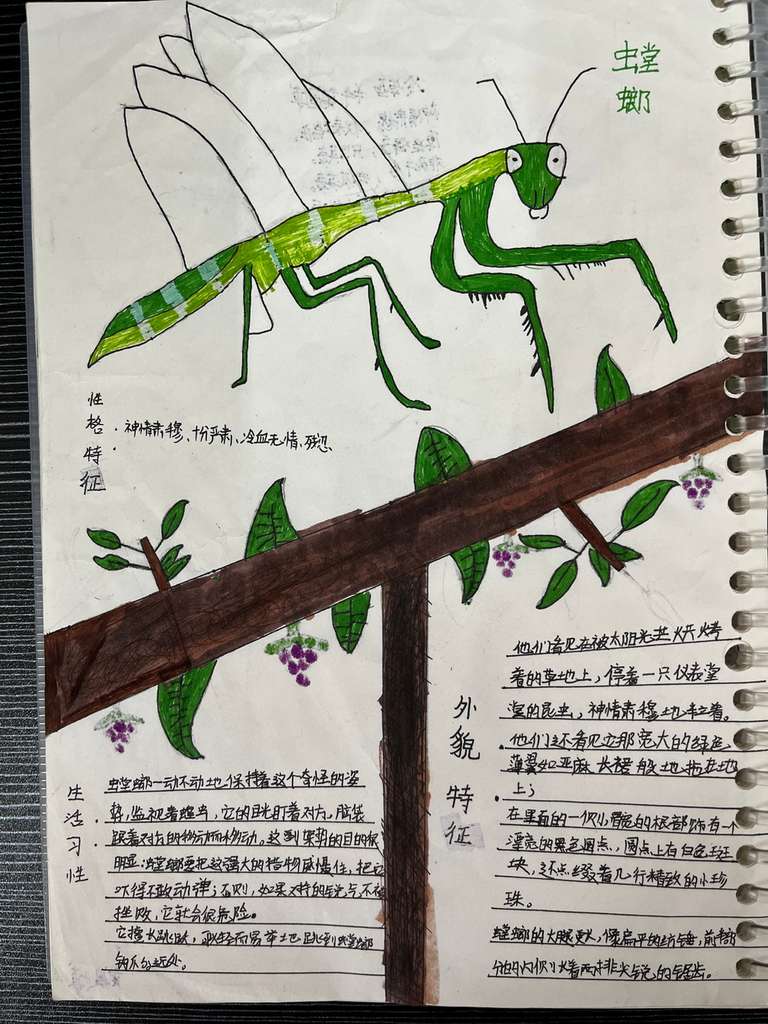 螳
螂
性
格
特
征
神情肃穆、十分严肃、冷血无情、残忍
生
活
习
性
螳螂一动不动地保持着这个奇怪的姿
势,监视着蝗虫,它的目光盯着对方,脑袋
跟着对方的移动而移动。这
的目的很
明显:螳螂要把这强大的猎物威慑住,把它
吓得不敢动弹;否则,如果对
锐气不被
挫败,它就会很危险。
它擅长跳跃,
轻而易举地跳到
外
貌
特
征
他们看见在被太阳光
烘烤
着的草地上,停着一只仪表堂
堂的昆虫,神情肃穆地立着。
他们还看见它那宽大的绿色
薄翼如亚麻长裙般地拖在地
上;
在里面的一侧
的根部饰有一个
漂亮的黑色圆点,圆点上有白色斑
块,还点缀着几行精致的小珍
珠。
螳螂的大腿更长,像扁平的纺锤,前半部
分的内侧长着两排尖锐的锯齿。